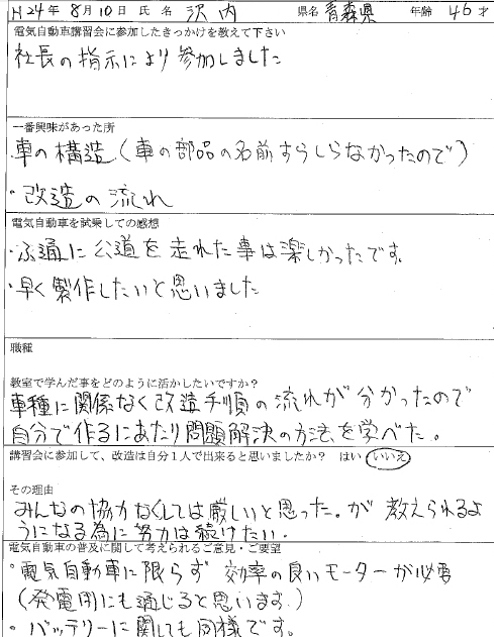 H24年 8月10日 氏 名 沢 内 県名 青森県 年齢 46才
電気自動車講習会に参加したきっかけを教えて下さい
社長の指示により参加しました
一番興味があった所
・車の構造(車の部品の名前すらしらなかったので)
・改造の流れ
電気自動車を試乗しての感想
・ふ通に公道を走れた事は楽しかったです。
・早く製作したいと思いました
職種
教室で学んだ事をどのように活かしたいですか?
車種に関係なく改造手順の流れが分かったので
自分で作るにあたり問題解決の方法を学べた。
講習会に参加して、改造は自分1人で出来ると思いましたか? はい いいえ
その理由
みんなの協力なくしては厳しいと思った。が 教えられるよ
うになる為に努力は続けたい.
電気自動車の普及に関して考えられるご意見・ご要望
・電気自動車に限らず 効率の良いモーターが必要
(発電用にも通じると思います。)
・バッテリーに関しても同様です。